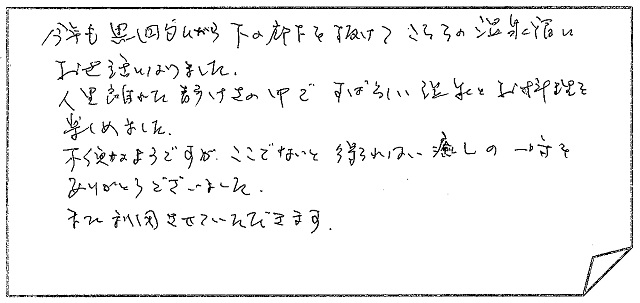 今年も思い切りながら下の廊下を抜けてこちらの温泉宿に
お世話になりました.
人里離れた静けさの中ですばらしい温泉とお料理を
楽しめました.
不便なようですが ここでないと得られない癒しの一時を
ありがとうございました.
また利用させていただきます.